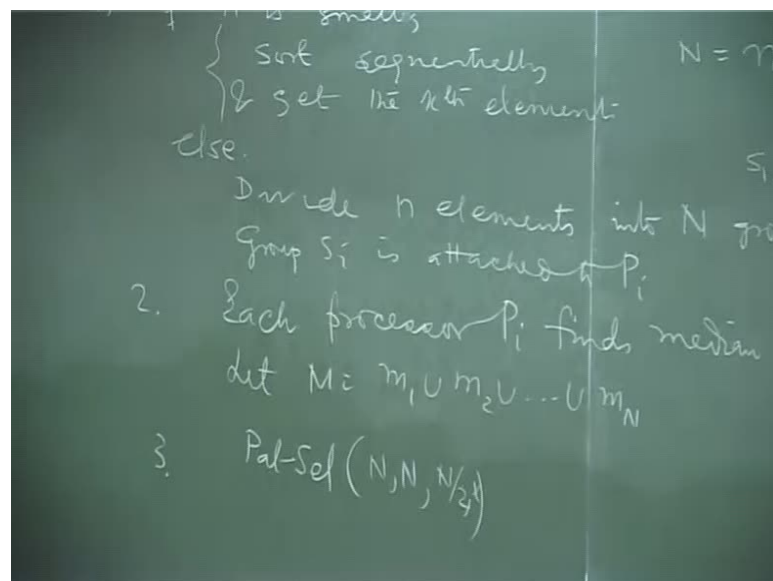 is smaller
Sort sequentially N =
& get the kth element
else.
S1
Divide n elements into N
Group Si is attached to Pi
2. Each processor Pi finds median
Let M = m1 U m2 U ... U mN
3. Pal-Sel (N, N, N/2,